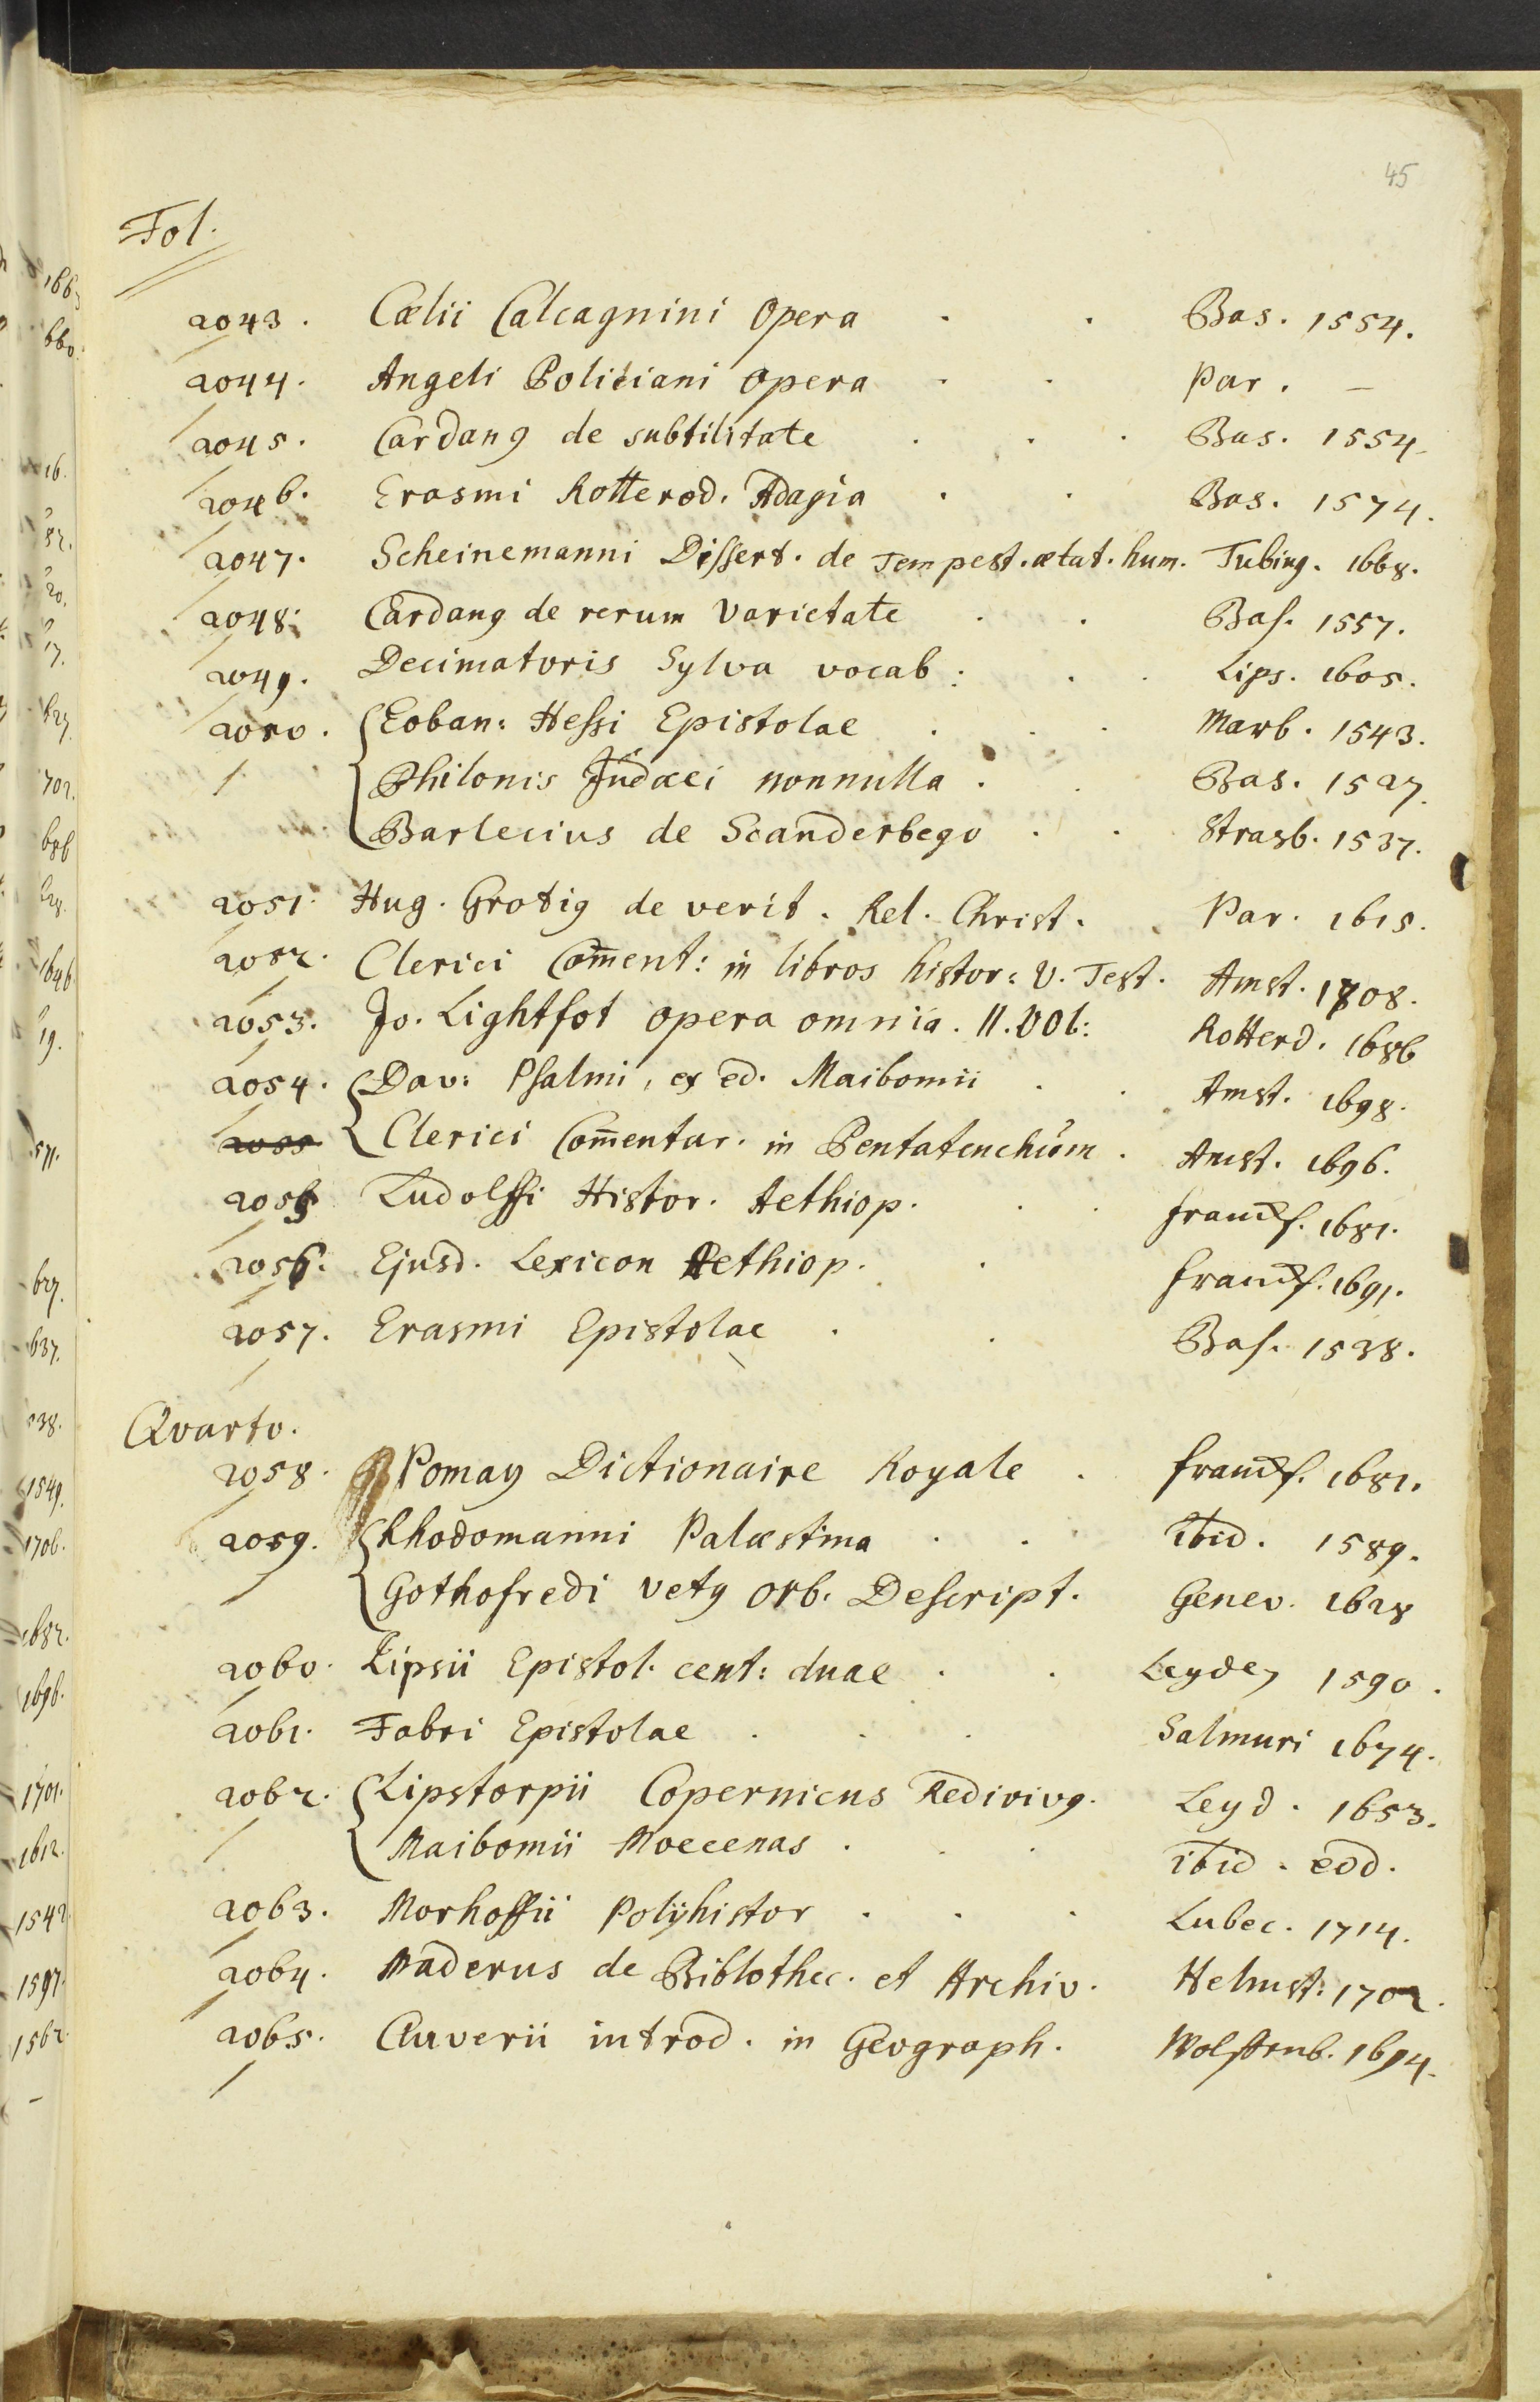 45
Fol.
2043. Cælii Calcagnini Opera . . Bas. 1554.
2044. Angeli Politiani Opera . . Par. —
2045. Cardang de subtilitate . . . Bas. 1554.
2046. Erasmi Rotterod. Adagia . . Bas. 1574.
2047. Scheinemanni Dissert. de Tempest. ætat. hum. Tubing. 1668.
2048. Cardang de rerum varietate . . Bas. 1557.
2049. Decimatoris Sylva vocab: . . Lips. 1605.
2050. Eoban: Hessi Epistolae . . . Marb. 1543.
Philonis Judaei nonnulla . . Bas. 1527.
Barlecius de Scanderbego . . Strasb. 1537.
2051. Hug. Grotig de verit. Rel. Christ. . Par. 1615.
2052. Clerici Com̄ent: in libros histor: V. Test. Amst. 1708.
2053. Jo. Lightfot opera omnia. II. Vol: Rotterd. 1686
2054. Dav: Psalmi, ex ed. Maibomii . . Amst. 1698.
2055 Clerici Com̄entar. in Pentateuchum . Amst. 1696.
2055 Ludolffi Histor. Aethiop. . . Francf. 1681.
2056. Ejusd. Lexicon Aethiop. . Francf. 1691.
2057. Erasmi Epistolae . . Bas. 1538.
Qvarto.
2058. Pomay Dictionaire Royale . Francf. 1681.
2059. Rhodomanni Palæstina . . . ibid. 1589.
Gothofredi vetg orb. Descript. Genev. 1628
2060. Lipsii Epistol. cent: duae . . Leyden 1590.
2061. Fabri Epistolae . . . Salmuri 1674.
2062. Lipstorpii Copernicus Redivivg. Leyd. 1653.
Maibomii Moecenas . . . ibid. eod.
2063. Morhoffii Polÿhistor . . . Lubec. 1714.
2064. Maderus de Biblothec. et Archiv. Helmst. 1702.
2065. Cluverii introd. in Geograph. Wolffenb. 1694.